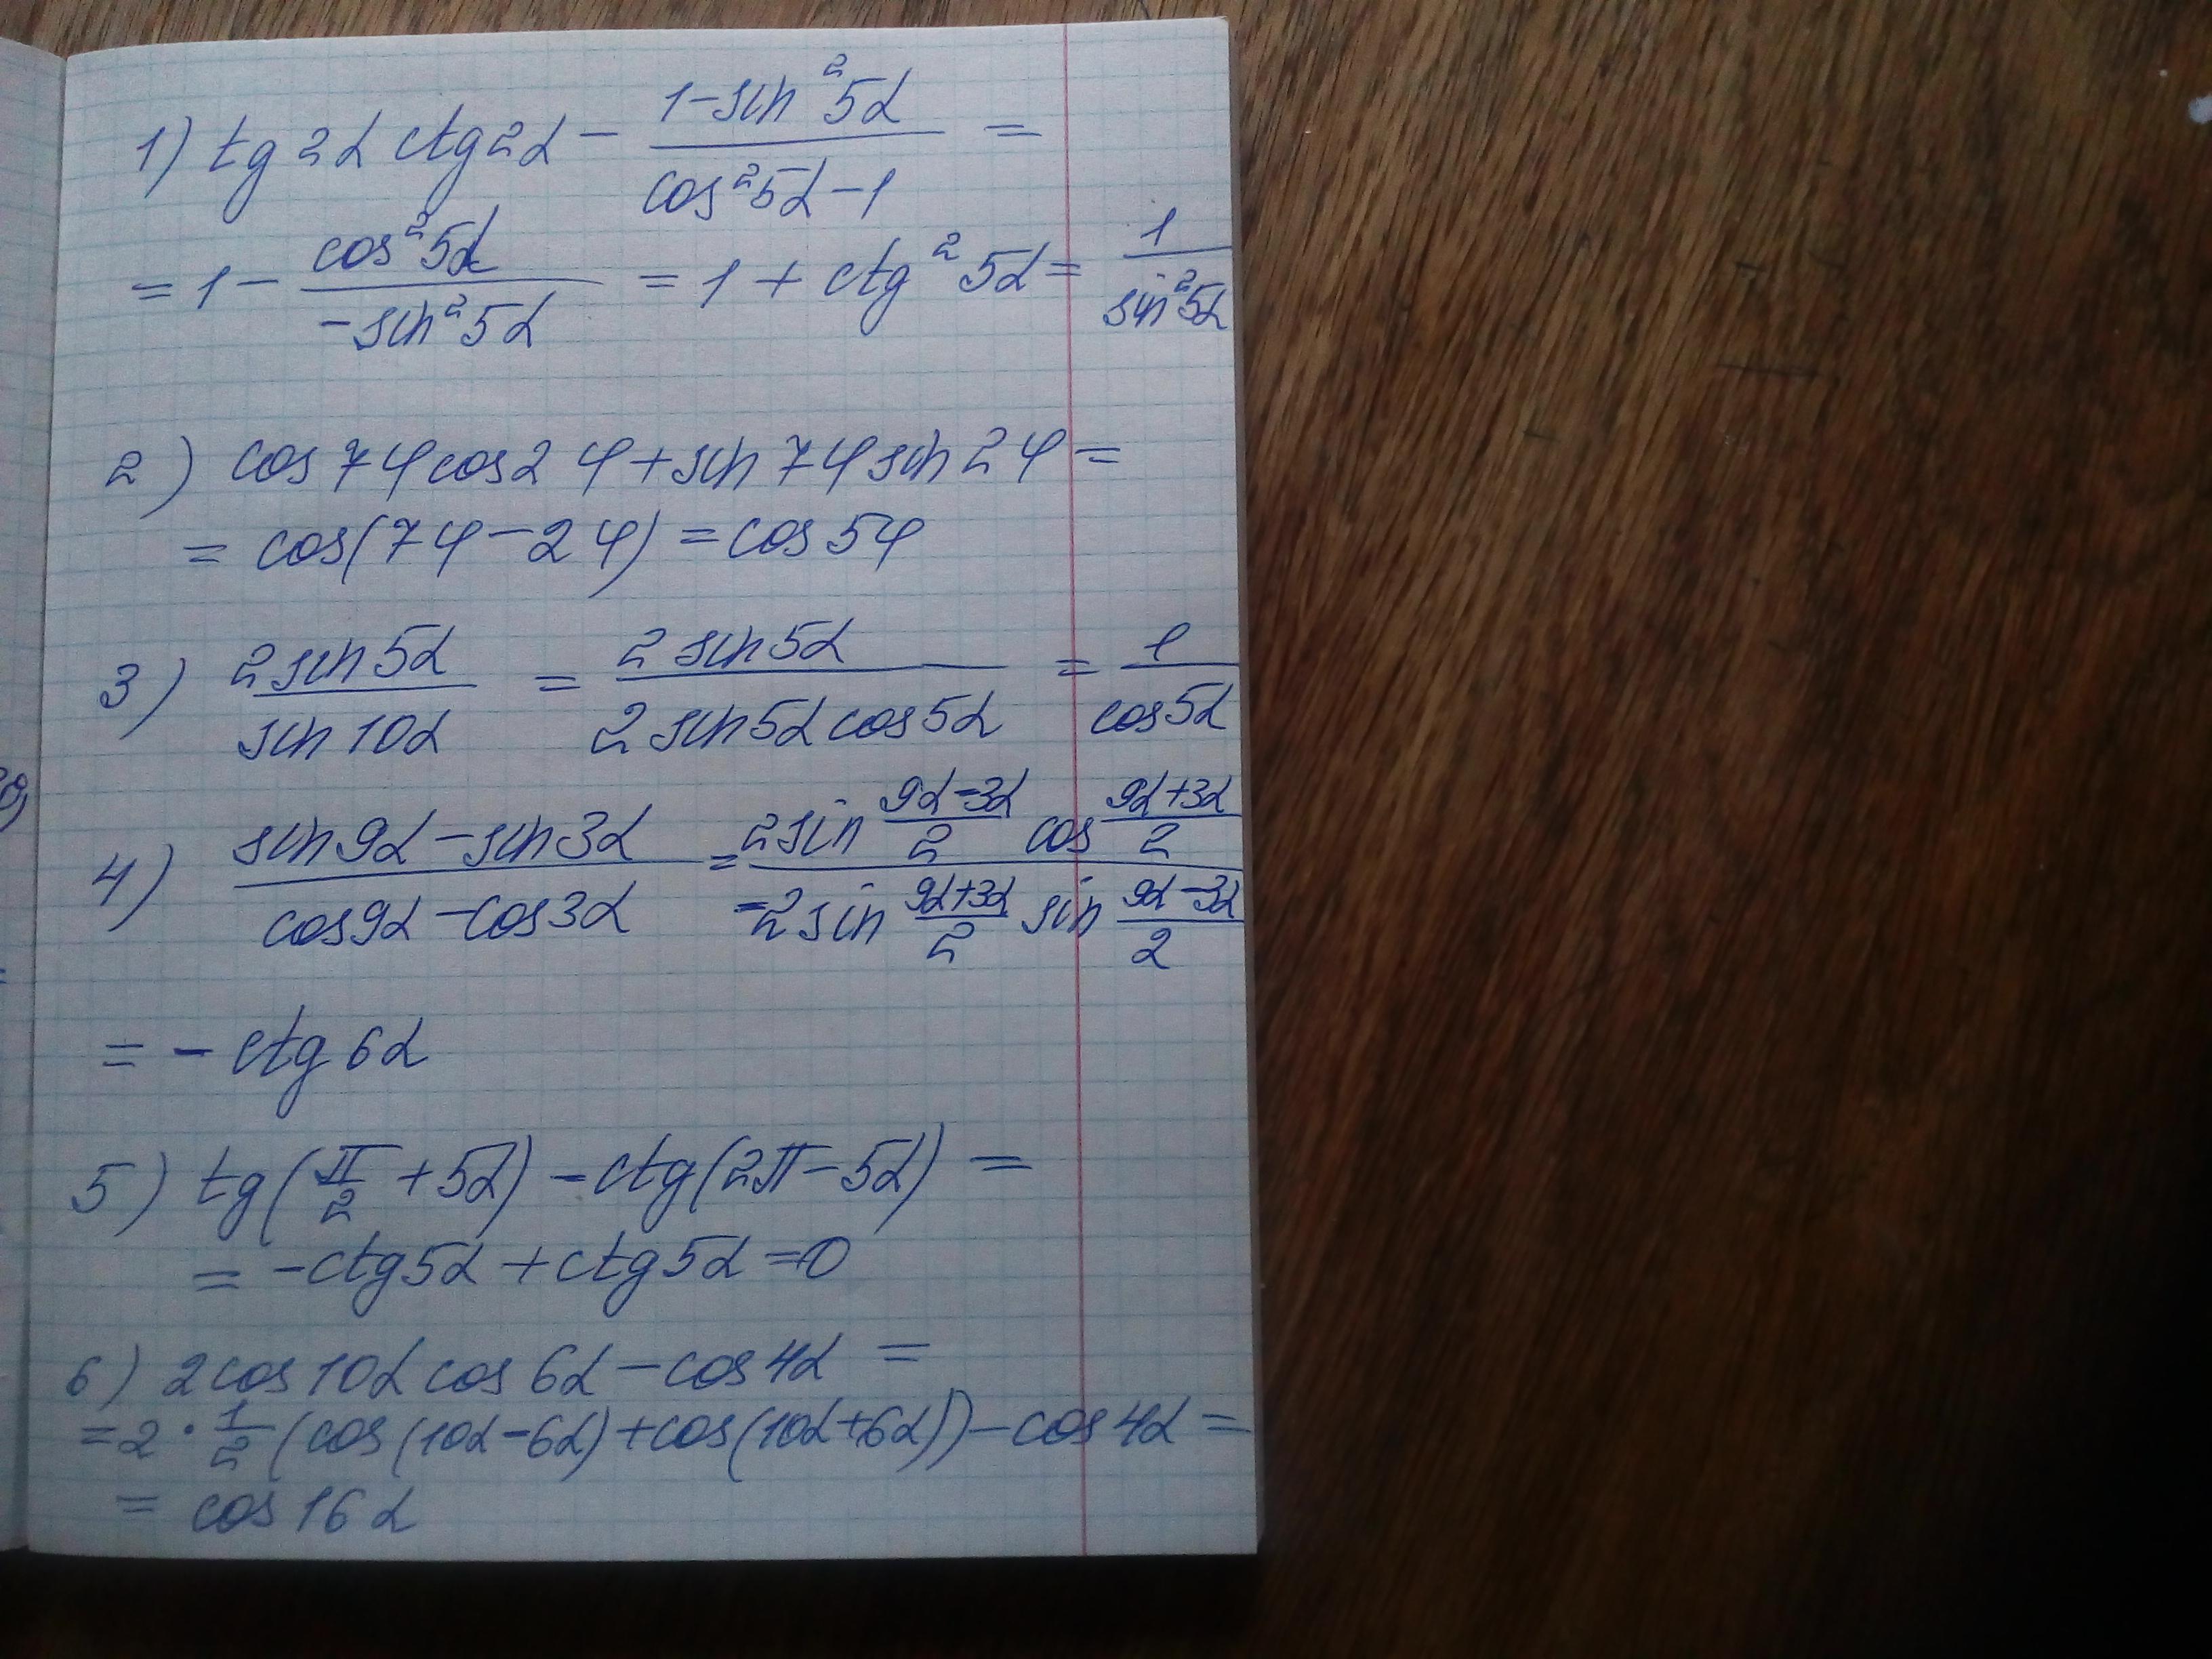 1) tg 2α ctg 2α − (1−sin²5α)/(cos²5α−1) =
= 1 − cos²5α/(−sin²5α) = 1 + ctg²5α = 1/sin²5α
2) cos7φcos2φ+sin7φsin2φ=
= cos(7φ−2φ)=cos5φ
3) 2sin5α/sin10α = 2sin5α/(2sin5αcos5α) = 1/cos5α
4) (sin9α−sin3α)/(cos9α−cos3α) = (2sin (9α−3α)/2 cos (9α+3α)/2)/(−2sin (9α+3α)/2 sin (9α−3α)/2)
= − ctg 6α
5) tg(π/2+5α)−ctg(2π−5α)=
= −ctg5α+ctg5α=0
6) 2cos10αcos6α−cos4α=
=2·1/2(cos(10α−6α)+cos(10α+6α))−cos4α=
= cos16α